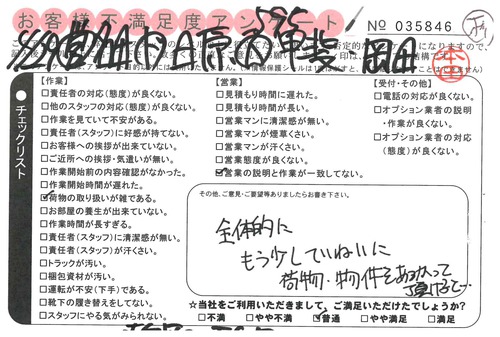 お客様不満足度アンケート
No 035846
岡田
チェックリスト
【作業】
□責任者の対応(態度)が良くない。
□他のスタッフの対応(態度)が良くない。
□作業を見ていて不安がある。
□責任者(スタッフ)に好感が持てない。
□お客様への挨拶が出来ていない。
□ご近所への挨拶・気遣いが無い。
□作業開始前の内容確認がなかった。
□作業開始時間が遅れた。
☑荷物の取り扱いが雑である。
□お部屋の養生が出来ていない。
□作業時間が長すぎる。
□責任者(スタッフ)に清潔感が無い。
□責任者(スタッフ)が汗くさい。
□トラックが汚い。
□梱包資材が汚い。
□運転が不安(下手)である。
□靴下の履き替えをしてない。
□スタッフにやる気がみられない。
【営業】
□見積もり時間に遅れた。
□見積もり時間が長い。
□営業マンに清潔感が無い。
□営業マンが煙草くさい。
□営業マンが汗くさい。
□営業態度が良くない。
☑営業の説明と作業が一致してない。
【受付・その他】
□電話の対応が良くない。
□オプション業者の説明
・作業が良くない。
□オプション業者の対応
(態度)が良くない。
その他、ご意見・ご要望等ありましたらお書き下さい。
全体的に
もう少していねいに
荷物・物件をあつかって
頂けるで…
☆当社をご利用いただきまして、ご満足いただけたでしょうか?
□不満 □やや不満 ☑普通 □やや満足 □満足